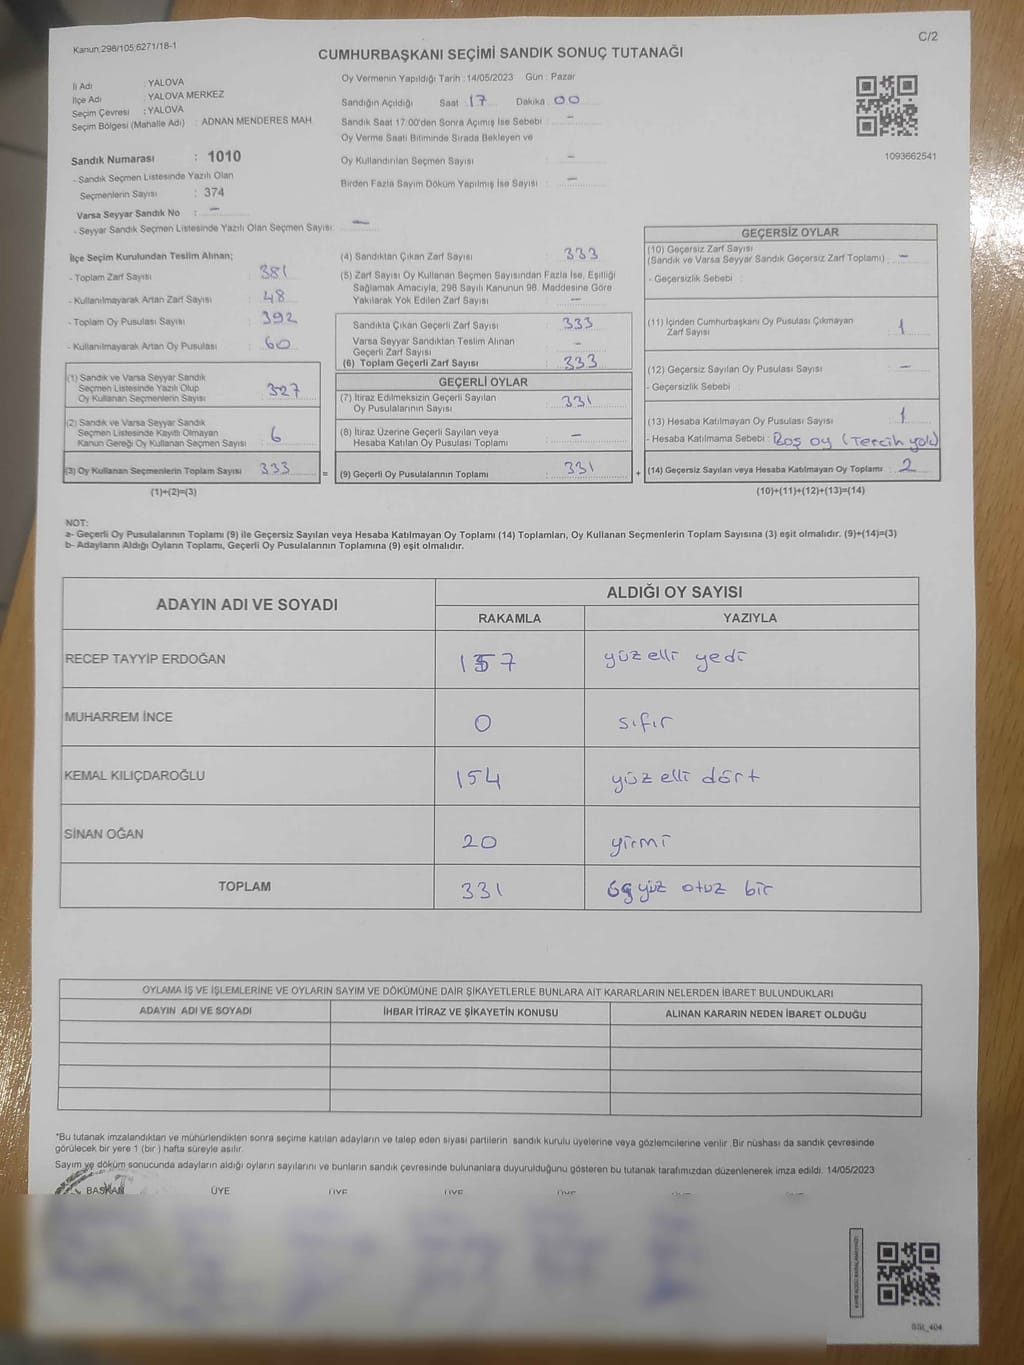 Kanun;298/105;6271/18-1
C/2
CUMHURBAŞKANI SEÇİMİ SANDIK SONUÇ TUTANAĞI
İli Adı : YALOVA
İlçe Adı : YALOVA MERKEZ
Seçim Çevresi : YALOVA
Seçim Bölgesi (Mahalle Adı) : ADNAN MENDERES MAH
Sandık Numarası : 1010
- Sandık Seçmen Listesinde Yazılı Olan
Seçmenlerin Sayısı : 374
Varsa Seyyar Sandık No : -
- Seyyar Sandık Seçmen Listesinde Yazılı Olan Seçmen Sayısı: -
Oy Vermenin Yapıldığı Tarih : 14/05/2023 Gün : Pazar
Sandığın Açıldığı Saat : 17 Dakika : 00
Sandık Saat 17:00'den Sonra Açımış İse Sebebi : -
Oy Verme Saati Bitiminde Sırada Bekleyen ve
Oy Kullandırılan Seçmen Sayısı : -
Birden Fazla Sayım Döküm Yapılmış İse Sayısı : -
1093662541
İlçe Seçim Kurulundan Teslim Alınan;
- Toplam Zarf Sayısı : 381
- Kullanılmayarak Artan Zarf Sayısı : 48
- Toplam Oy Pusulası Sayısı : 392
- Kullanılmayarak Artan Oy Pusulası : 60
(1) Sandık ve Varsa Seyyar Sandık
Seçmen Listesinde Yazılı Olup
Oy Kullanan Seçmenlerin Sayısı : 327
(2) Sandık ve Varsa Seyyar Sandık
Seçmen Listesinde Kayıtlı Olmayan
Kanun Gereği Oy Kullanan Seçmen Sayısı : 6
(3) Oy Kullanan Seçmenlerin Toplam Sayısı : 333
(1)+(2)=(3)
(4) Sandıktan Çıkan Zarf Sayısı : 333
(5) Zarf Sayısı Oy Kullanan Seçmen Sayısından Fazla İse, Eşitliği
Sağlamak Amacıyla, 298 Sayılı Kanunun 98. Maddesine Göre
Yakılarak Yok Edilen Zarf Sayısı : -
Sandıkta Çıkan Geçerli Zarf Sayısı : 333
Varsa Seyyar Sandıktan Teslim Alınan
Geçerli Zarf Sayısı : -
(6) Toplam Geçerli Zarf Sayısı : 333
GEÇERLİ OYLAR
(7) İtiraz Edilmeksizin Geçerli Sayılan
Oy Pusulalarının Sayısı : 331
(8) İtiraz Üzerine Geçerli Sayılan veya
Hesaba Katılan Oy Pusulası Toplamı : -
= (9) Geçerli Oy Pusulalarının Toplamı : 331 +
GEÇERSİZ OYLAR
(10) Geçersiz Zarf Sayısı
(Sandık ve Varsa Seyyar Sandık Geçersiz Zarf Toplamı) : -
- Geçersizlik Sebebi :
(11) İçinden Cumhurbaşkanı Oy Pusulası Çıkmayan
Zarf Sayısı : 1
(12) Geçersiz Sayılan Oy Pusulası Sayısı : -
- Geçersizlik Sebebi :
(13) Hesaba Katılmayan Oy Pusulası Sayısı : 1
- Hesaba Katılmama Sebebi : Boş oy (Tercih yok)
(14) Geçersiz Sayılan veya Hesaba Katılmayan Oy Toplamı : 2
(10)+(11)+(12)+(13)=(14)
NOT:
a- Geçerli Oy Pusulalarının Toplamı (9) ile Geçersiz Sayılan veya Hesaba Katılmayan Oy Toplamı (14) Toplamları, Oy Kullanan Seçmenlerin Toplam Sayısına (3) eşit olmalıdır. (9)+(14)=(3)
b- Adayların Aldığı Oyların Toplamı, Geçerli Oy Pusulalarının Toplamına (9) eşit olmalıdır.
ADAYIN ADI VE SOYADI ALDIĞI OY SAYISI
RAKAMLA YAZIYLA
RECEP TAYYİP ERDOĞAN 157 yüz elli yedi
MUHARREM İNCE 0 sıfır
KEMAL KILIÇDAROĞLU 154 yüz elli dört
SİNAN OĞAN 20 yirmi
TOPLAM 331 üçyüz otuz bir
OYLAMA İŞ VE İŞLEMLERİNE VE OYLARIN SAYIM VE DÖKÜMÜNE DAİR ŞİKAYETLERLE BUNLARA AİT KARARLARIN NELERDEN İBARET BULUNDUKLARI
ADAYIN ADI VE SOYADI İHBAR İTİRAZ VE ŞİKAYETİN KONUSU ALINAN KARARIN NEDEN İBARET OLDUĞU
*Bu tutanak imzalandıktan ve mühürlendikten sonra seçime katılan adayların ve talep eden siyasi partilerin sandık kurulu üyelerine veya gözlemcilerine verilir .Bir nüshası da sandık çevresinde
görülecek bir yere 1 (bir ) hafta süreyle asılır.
Sayım ve döküm sonucunda adayların aldığı oyların sayılarını ve bunların sandık çevresinde bulunanlara duyurulduğunu gösteren bu tutanak tarafımızdan düzenlenerek imza edildi. 14/05/2023
BAŞKAN ÜYE ÜYE ÜYE ÜYE ÜYE